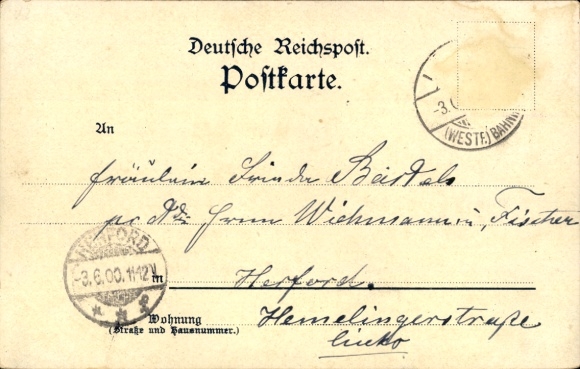 Deutsche Reichspost.
Postkarte.
-3.
(WESTF.) BAHNH
An
Fräulein Frieda Bartels
pr. Adr. Herrn Wichmann u. Fischer
HERFORD
-3.6.00.11-12V.
in Herford.
Wohnung Hemelingerstraße
(Straße und Hausnummer.)
links